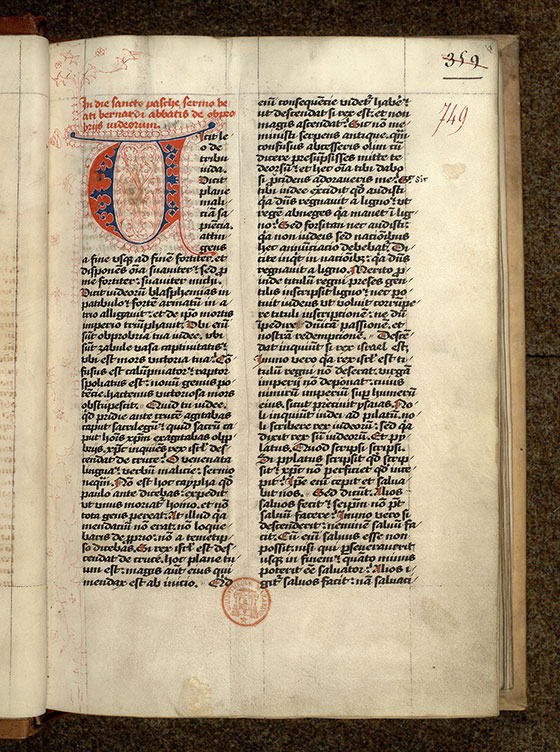 359
749
In die sancto pasche sermo be
ati bernardi abbatis de obpro
brijs iudeorum.
Vicit le
o de
tribu
iuda.
Vicit
plane
mali
cia sa
piecia.
attin
gens
a fine vsq; ad fine fortiter. et
dispones oia suauiter. sed p
me fortiter. suauiter michi.
Vicit iudeorum blasphemias in
patibulo. forte armatu in a
trio alligauit. et de ipo mortis
imperio triuphauit. Vbi eni
sut obprobria tua iudee. vbi
sut zabule vasa captiuitatis. et
vbi est mors victoria tua. Co
fusus est calupniator. et raptor
spoliatus est. nouu genus po
tecie. hactenus victoriosa mors
obstupescit. Quid tu iudee.
qd pridie ante cruce agitabas
caput sacrilegu. et quid sacru ca
put hois xpm exagitabas opp
brijs. xpc inquies rex isrl des
cendat de cruce. O venenata
lingua. verbu malicie. sermo
neqm. Non est hoc caypha qd
paulo ante dicebas. expedit
vt vnus moriat homo. et no
tota gens pereat. At illud qa
mendaciu no erat. no loque
baris de pprio. no a temetip
so dicebas. Si rex isrl est des
cendat de cruce. hoc plane tu
um est. magis aut eius qui
mendax est ab inicio. Qd
eni consequecie videt habere
vt descendat si rex est. et non
magis ascendat. Sic no me
ministi serpens antique. qm
confusus abcesseris olim cu
dicere presupsisses mitte te
deorsu. et hec oia tibi dabo
si procidens adoraueris me. Sic
tibi iudee excidit qd audisti
qa dns regnauit a ligno. vt
rege abneges qa manet i lig
no. Sed forsitan nec audisti.
qa non iudeis sed nacionibus
hec annunciacio debebat. Di
cite inqt in nacionibus. qa dns
regnauit a ligno. Merito pro
inde titulu regni preses gen
tilis inscripsit ligno. nec po
tuit iudeus vt voluit corrupe
re tituli inscriptione. ne du
ipedire dnica passione. et
nostra redemptione. Descen
dat inquiut si rex israel est.
Immo vero qa rex isrl est. ti
tulu regni no deserat. virgam
imperij no deponat. cuius
nimiru imperiu sup humeru
eius. sicut precinuit ysaias. No
li inquiut iudei ad pilatu. no
li scribere rex iudeoru. sed qa
dixit rex su iudeoru. Et py
latus. Quod scripsi scripsi.
Si pylatus scripsit qd scrip
sit. et xpc no perficiet qd ince
pit. Ipe eni cepit. et salua
bit nos. Sed dicut. Alios
saluos fecit. et seipm no pt
saluu facere. Immo vero si
descenderet. nemine saluu fa
cit. Cu eni saluus esse non
possit. nisi qui perseuerauerit
vsq; in finem. quato minus
poterit ee saluator. Alios i
git saluos facit. na saluaci